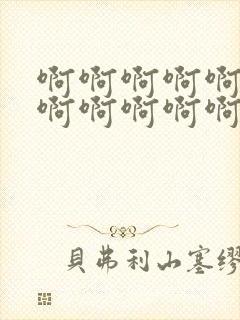 啊啊啊啊啊
啊啊啊啊啊
貝弗利山塞繆